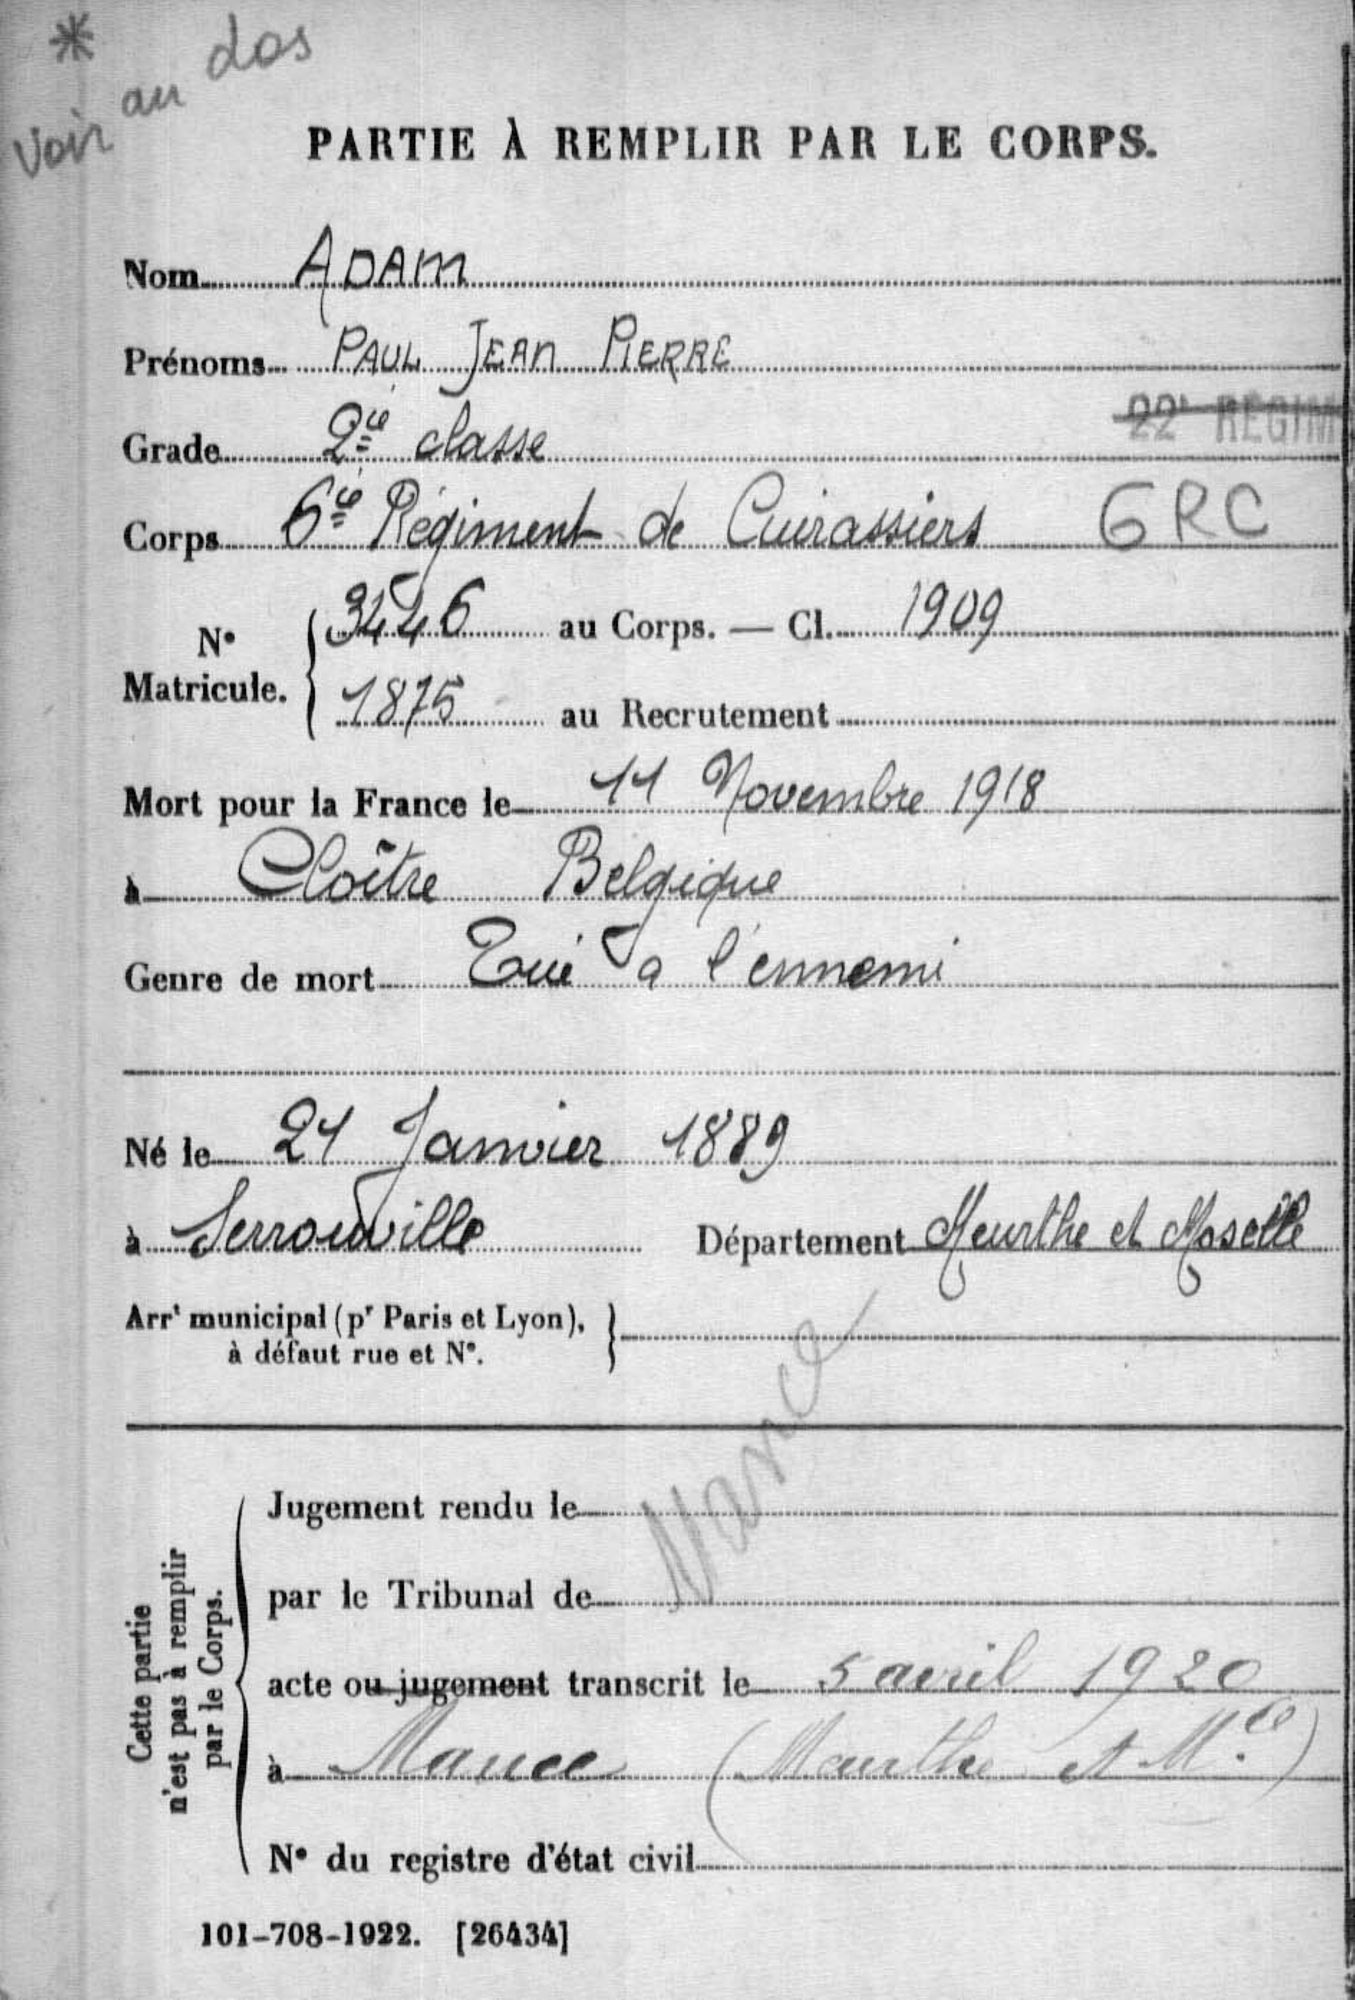 *
voir au dos
PARTIE À REMPLIR PAR LE CORPS.
Nom ADAM
Prénoms PAUL JEAN PIERRE
22e REGIM
Grade 2e classe
Corps 6e Régiment de Cuirassiers 6 RC
N° Matricule. { 3446 au Corps. — Cl. 1909
1875 au Recrutement
Mort pour la France le 11 Novembre 1918
à Cloître Belgique
Genre de mort Tué a l'ennemi
Né le 21 Janvier 1889
à Serrouville Département Meurthe et Moselle
Arrt municipal (pr Paris et Lyon), }
à défaut rue et N°.
Cette partie
n'est pas à remplir
par le Corps.
Jugement rendu le
par le Tribunal de
acte ou jugement transcrit le 5 avril 1920
à Mance (Meurthe et Mlle)
Mance
N° du registre d'état civil
101-708-1922. [26434]